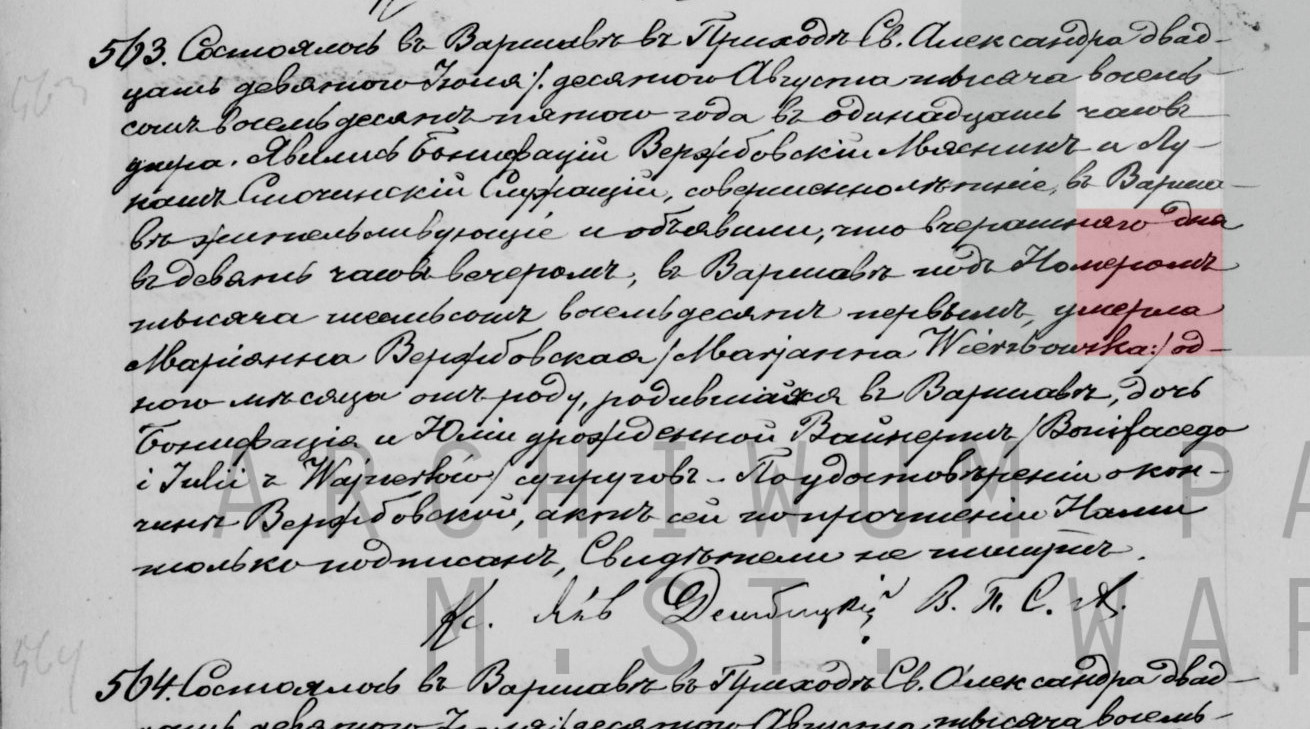 563
563. Состоялось въ Варшавѣ въ Приходѣ Св. Александра двад-
цать девятого Іюля /. десятого Августа тысяча восемь
сотъ восемьдесятъ пятого года въ одинадцать часовъ
утра. Явились Бонифацій Вержбовскій Мясникъ и Лу-
кашъ Смочинскій Служащій, совершеннолѣтніе, въ Варша-
вѣ жительствующіе и объявили, что вчерашняго дня
въ девять часовъ вечеромъ, въ Варшавѣ подъ Номеромъ
тысяча шестьсотъ восемьдесятъ первымъ, умерла
Маріянна Вержбовская / Marjanna Wierzbowska:/ од-
ного мѣсяца отъ роду, родившаяся въ Варшавѣ, дочь
Бонифація и Юліи урожденной Вайнертъ / Bonifacego
i Julii z Wajnertów / супруговъ. По удостовѣреніи о кон-
чинѣ Вержбовской, актъ сей по прочтеніи Нами
только подписанъ, Свидѣтели не пишутъ.
Кс. Янъ Дембицкій В. П. С. А.
ARCHIWUM PA
M.ST. WAR
564
564. Состоялось въ Варшавѣ въ Приходѣ Св. Александра двад-
цать девятого Іюля /. десятого Августа тысяча восемь-